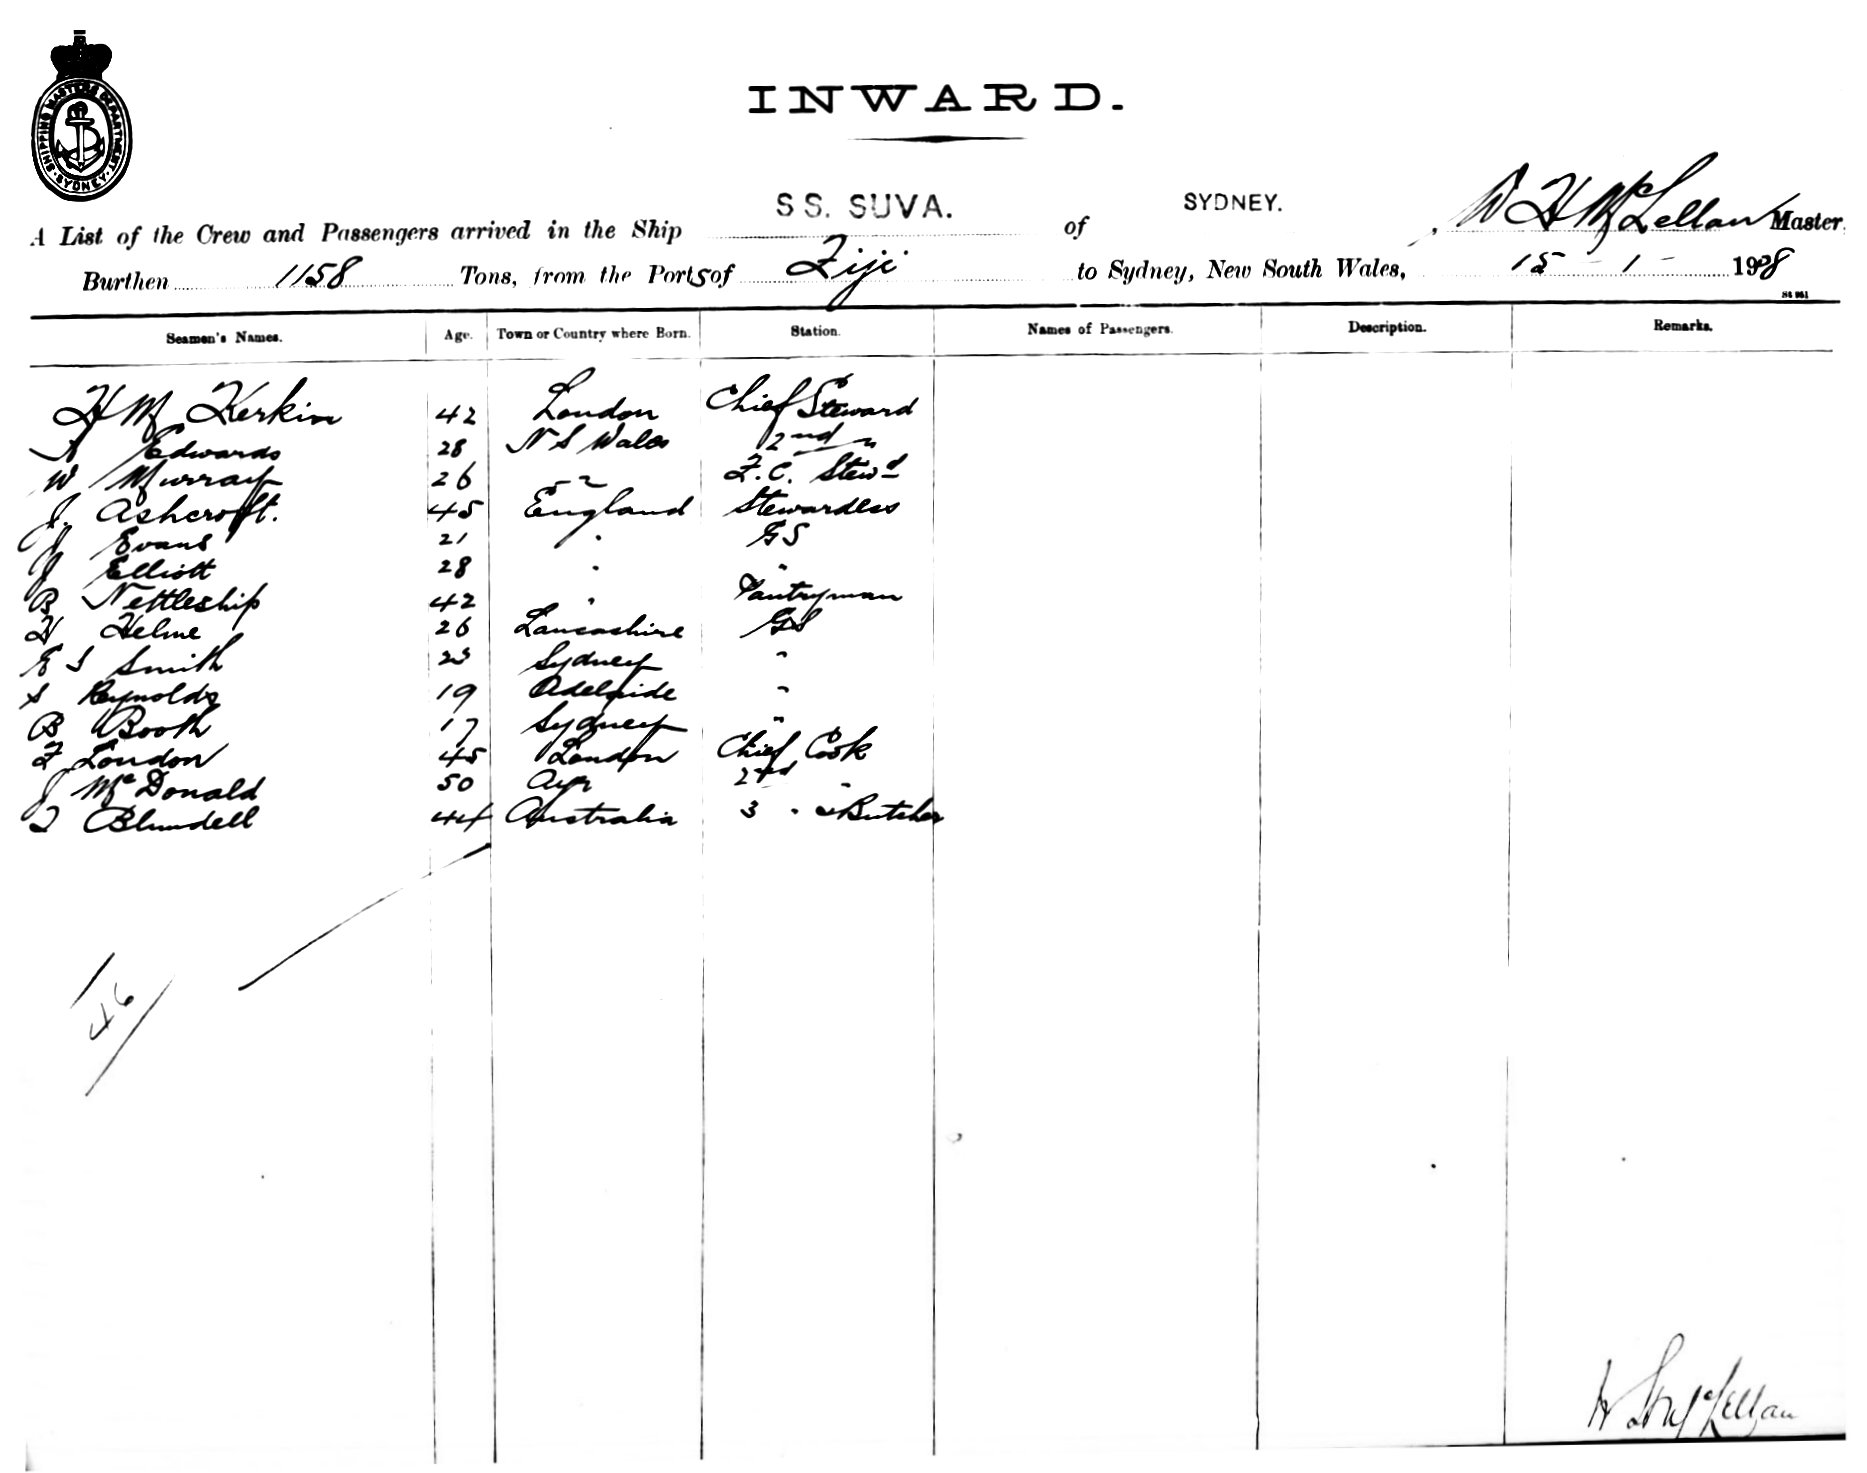 SHIPPING MASTERS DEPARTMENT SYDNEY
INWARD.
A List of the Crew and Passengers arrived in the Ship SS. SUVA. of SYDNEY. W H McLellan Master,
Burthen 1158 Tons, from the Ports of Fiji to Sydney, New South Wales, 15 - 1 - 1908
Seamen's Names. Age. Town or Country where Born. Station. Names of Passengers. Description. Remarks.
H M Kerkin 42 London Chief Steward
A Edwards 28 N S Wales 2nd "
W Murray 26 " F.C. Stewd
J. Ashcroft. 45 England Stewardess
J Evans 21 " GS
J Elliott 28 " "
B Nettleship 42 " Pantryman
H Helme 26 Lancashire GS
E S Smith 23 Sydney "
S Reynolds 19 Adelaide "
B Booth 17 Sydney "
F London 45 London Chief Cook
J McDonald 50 Ayr 2nd "
T Blundell 44 Australia 3 " & Butcher
46
W H McLellan